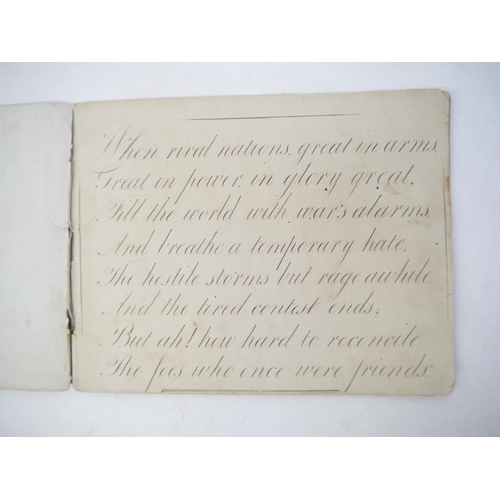 When rival nations, great in arms,
Great in power, in glory great,
Fill the world with war's alarms,
And breathe a temporary hate,
The hostile storms but rage awhile
And the tired contest ends;
But ah! how hard to reconcile
The foes who once were friends.